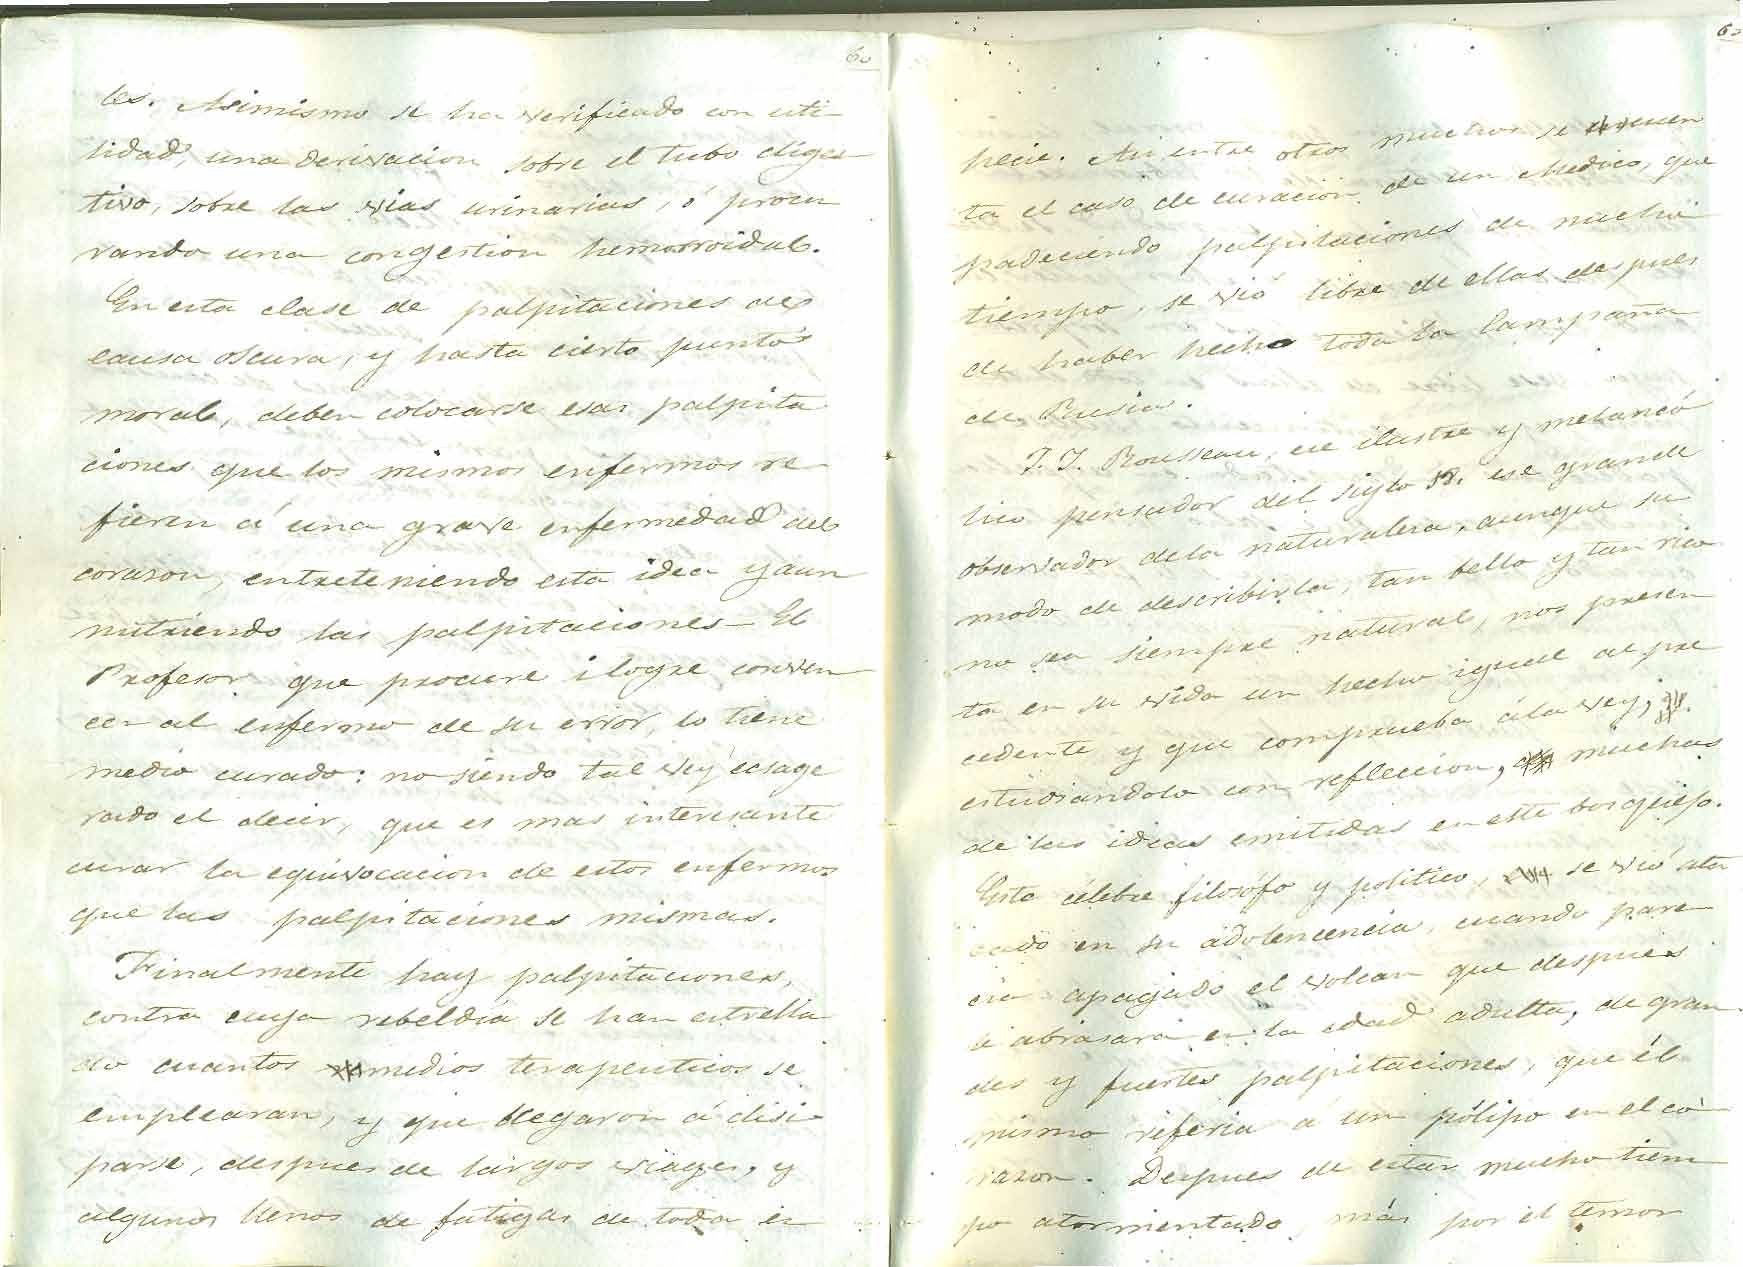 60
les. Asimismo se ha verificado con uti-
lidad, una derivacion sobre el tubo diges-
tivo, sobre las vias urinarias, ó procu
rando una congestion hemorroidal.
En esta clase de palpitaciones de
causa oscura, y hasta cierto punto
moral, deben colocarse esas palpita
ciones que los mismos enfermos re-
fieren á una grave enfermedad del
corazon, entreteniendo esta idea y aun
nutriendo las palpitaciones - El
Profesor que procure i logre conven
cer al enfermo de su error, lo tiene
medio curado: no siendo tal vez ecsage
rado el decir, que es mas interesante
curar la equivocacion de estos enfermos
que las palpitaciones mismas.
Finalmente hay palpitaciones,
contra cuya rebeldía se han estrella
do cuantos medios terapeuticos se
emplearan, y que llegaron á disi-
parse, despues de largos viages, y
algunos llenos de fatigas de toda es
60
pecie. Asi entre otros muchos se cuen
ta el caso de curacion de un Medico, que
padeciendo palpitaciones de mucho
tiempo, se vió libre de ellas despues
de haber hecho toda la Campaña
de Rusia.
J. J. Rousseau, ese ilustre y melancó
lico pensador del siglo 18. ese grande
observador de la naturaleza, aunque su
modo de describirla, tan bello y tan rico
no sea siempre natural, nos presen
ta en su vida un hecho igual al pre
cedente y que comprueba á la vez,
estudiandolo con refleccion, muchas
de las ideas emitidas en este bosquejo.
Este célebre filosófo y politico, se vió ata
cado en su adolencencia, cuando pare
cia apagado el volcan que despues
le abrasara en la edad adulta, de gran
des y fuertes palpitaciones, que él
mismo referia a un pólipo en el co
razon. Despues de estar mucho tiem
po atormentado más por el temor